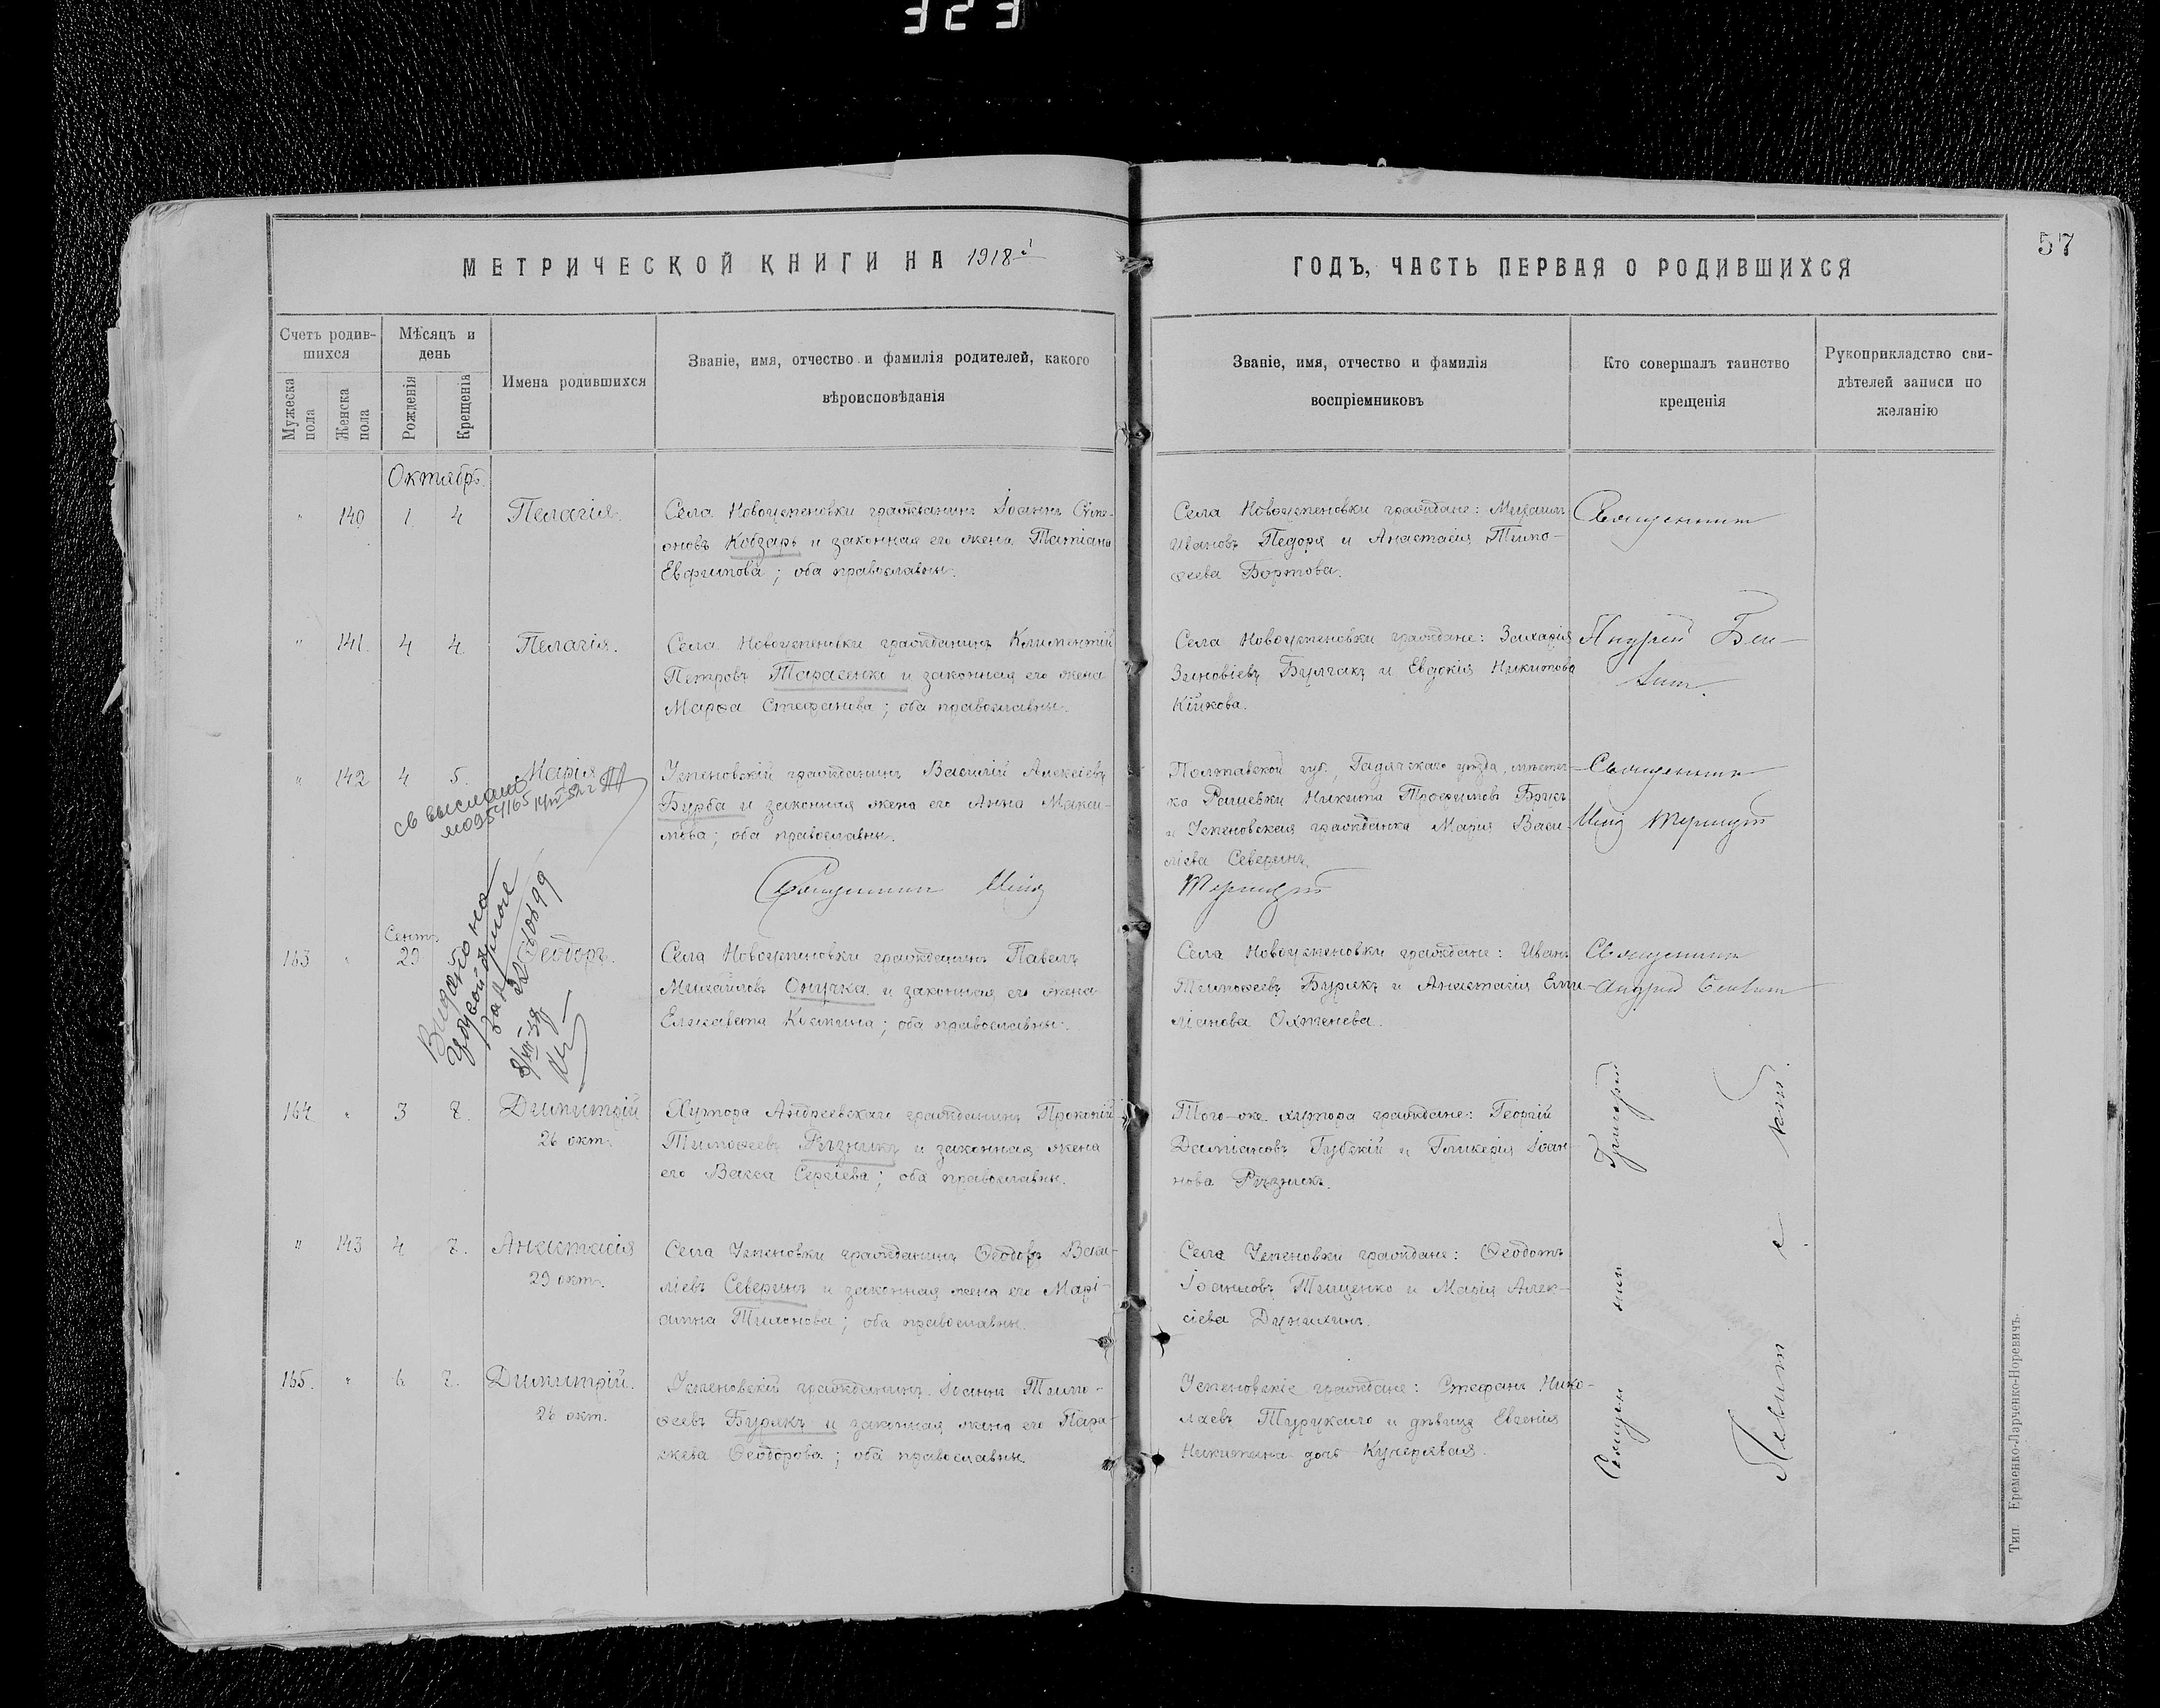 323
57
МЕТРИЧЕСКОЙ КНИГИ НА 1918й
ГОДЪ, ЧАСТЬ ПЕРВАЯ О РОДИВШИХСЯ
Счетъ родив-
шихся
Мужеска пола
Женска пола
Мѣсяцъ и
день
Рожденія
Крещенія
Имена родившихся
Званіе, имя, отчество и фамилія родителей, какого
вѣроисповѣданія
Званіе, имя, отчество и фамилія
воспріемниковъ
Кто совершалъ таинство
крещенія
Рукоприкладство сви-
дѣтелей записи по
желанію
Октябрь.
" 140 1 4 Пелагія.
Села Новоуспеновки гражданинъ Іоаннъ Симе-
оновъ Кобзарь и законная его жена Татіана
Евфимова; оба православны.
Села Новоуспеновки граждане: Михаилъ
Ивановъ Педоря и Анастасія Тимо-
ѳеева Бортова.
Священникъ
" 141. 4 4. Пелагія.
Села Новоуспеновки гражданинъ Климентій
Петровъ Тарасенко и законная его жена
Марѳа Стефанова; оба православны.
Села Новоуспеновки граждане: Захарія
Зиновіевъ Булгакъ и Евдокія Никитова
Кійкова.
Андрей
" 142 4 5. Марія
св выслано
Успеновскій гражданинъ Василій Алексіевъ
Бурба и законная жена его Анна Макси-
мова; оба православны.
Священникъ
Полтавской губ., Гадячскаго уѣзда, мѣстеч-
ка Рашевки Никита Трофимовъ Брикъ
и Успеновская гражданка Марія Васи-
ліева Северинъ.
Священникъ
Сент.
163 " 29 5. Ѳеодоръ.
Села Новоуспеновки гражданинъ Павелъ
Михайловъ Онучка и законная его жена
Елисавета Космина; оба православны.
Села Новоуспеновки граждане: Иванъ
Тимоѳеевъ Бурякъ и Анастасія Еми-
ліанова Охтенева.
Священникъ
Андрей
164 " 3 7. Димитрій
26 окт.
Хутора Андреевскаго гражданинъ Прокопій
Тимоѳеевъ Рѣзникъ и законная жена
его Васса Сергіева; оба православны.
Того-же хутора граждане: Георгій
Даміановъ Губскій и Гликерія Іоан-
нова Рѣзникъ.
" 143 4 7. Анастасія
29 окт.
Села Успеновки гражданинъ Ѳеодоръ Васи-
ліевъ Северинъ и законная жена его Марі-
амна Тихонова; оба православны.
Села Успеновки граждане: Ѳеодотъ
Іоанновъ Тищенко и Марія Алек-
сіева
165. " 6 7. Димитрій.
26 окт.
Успеновскій гражданинъ Іоаннъ Тимо-
ѳеевъ Бурякъ и законная жена его Пара-
скева Ѳеодорова; оба православны.
Успеновскіе граждане: Стефанъ Нико-
лаевъ и дѣвица Евгенія
Никитина дочь Кучерявая.
Священникъ Григорій
Тип. Еременко-Ларченко-Норевичъ.